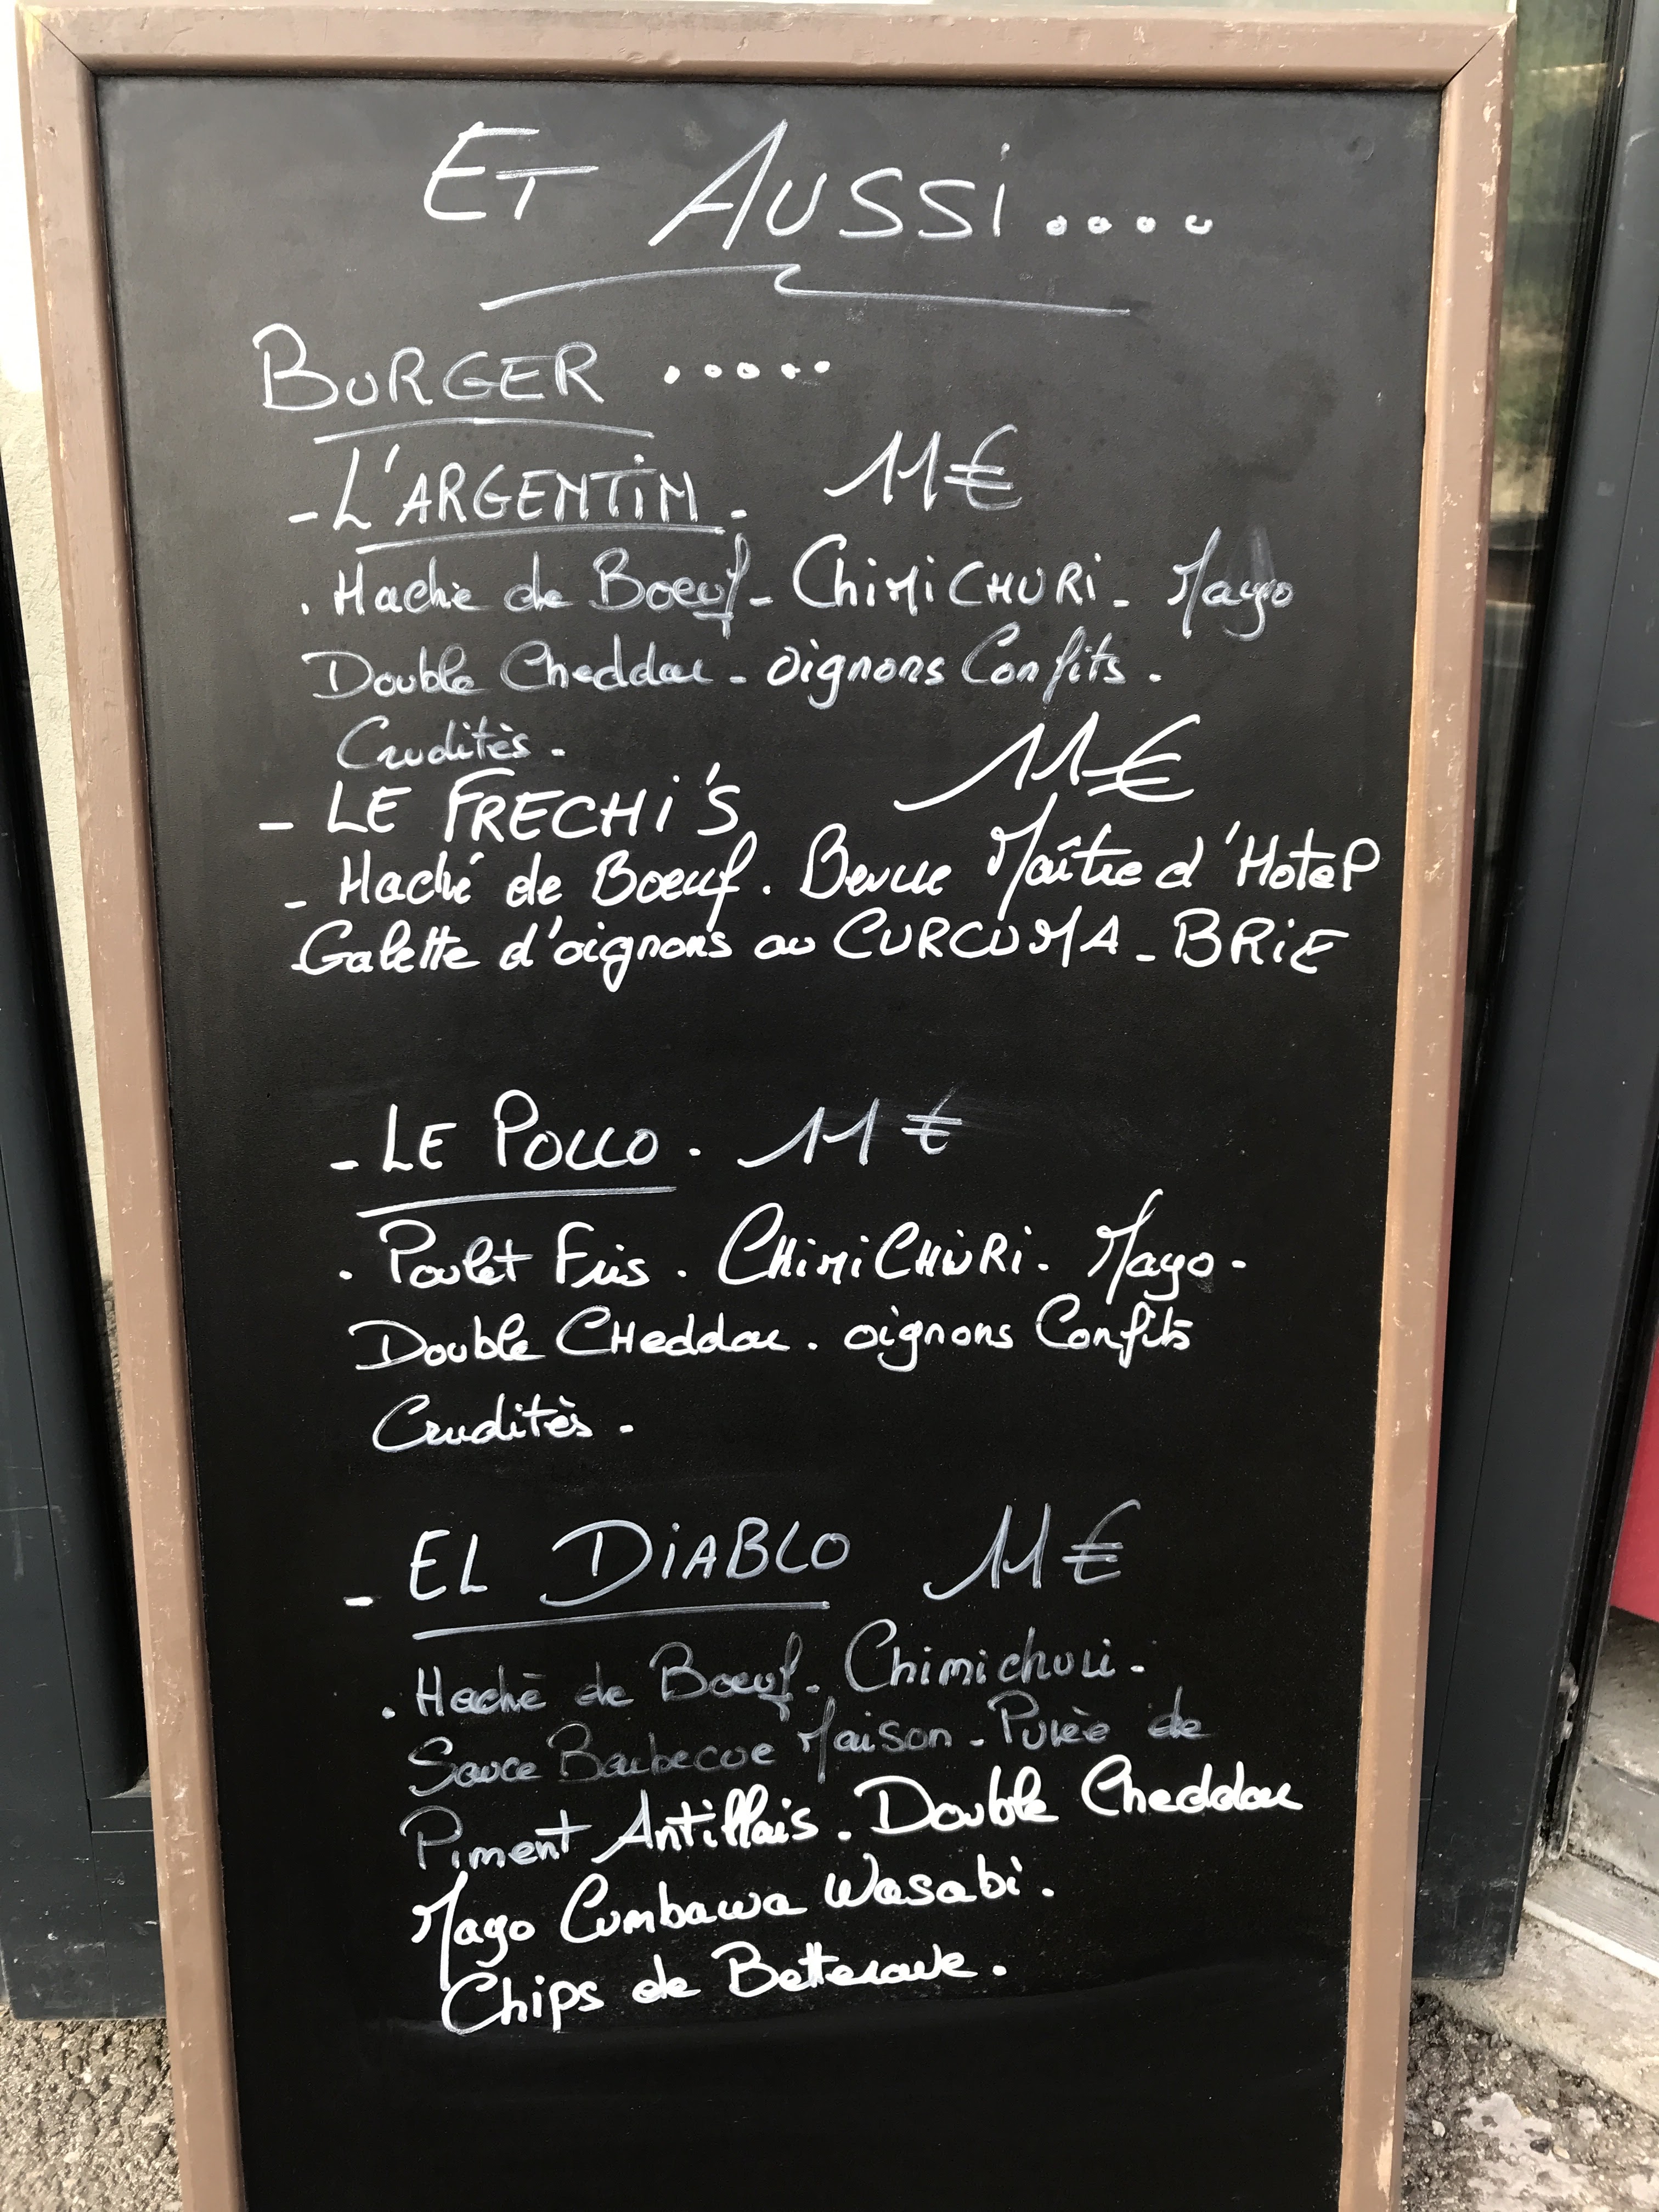 ET AUSSI....
BURGER .....
- L'ARGENTIN - 11€
. Haché de Boeuf - CHIMICHURI - Mayo
Double Cheddar - oignons Confits .
Crudités -
- LE FRECHI'S 11€
- Haché de Boeuf . Beurre Maître d'Hotel
Galette d'oignons au CURCUMA - BRIE
- LE POLLO . 11€
. Poulet Fris . CHIMICHURI - Mayo -
Double CHeddar . oignons Confits
Crudités -
- EL DIABLO 11€
. Haché de Boeuf - Chimichuri -
Sauce Barbecue Maison - Purée de
Piment Antillais . Double Cheddar
Mayo Cumbawa Wasabi .
Chips de Betterave .